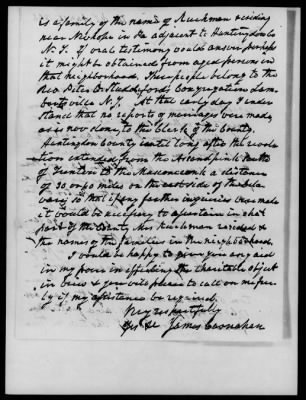 is a family of the name of Ruckman residing
near New hope in Pa adjacent to Hunterdon Co
N. J. If oral testimony would answer perhaps
it might be obtained from aged persons in
that neighborhood. These people belong to the
Rev. Peter O. Studdifords Congregation Lam-
bertsville N. J. At that early day I under
stand that no reports of marriages were made
as is now done, to the Clerk of the County.
Hunterdon County until long after the revolu
tion extended from the Assanpink
of Trenton to the Musconecunk a distance
of 30, or 40 miles on the east side of the Dela
ware, so that if any further inquiries are made
it would be necessary to ascertain in what
part of the County Mrs Ruckman resided &
the names of the families in the neighborhood.
I would be happy to give you any aid
in my power in effecting the charitable object
in view & you will please to call on me free
ly if my assistance be required.
Very respectfully
Yrs &c James